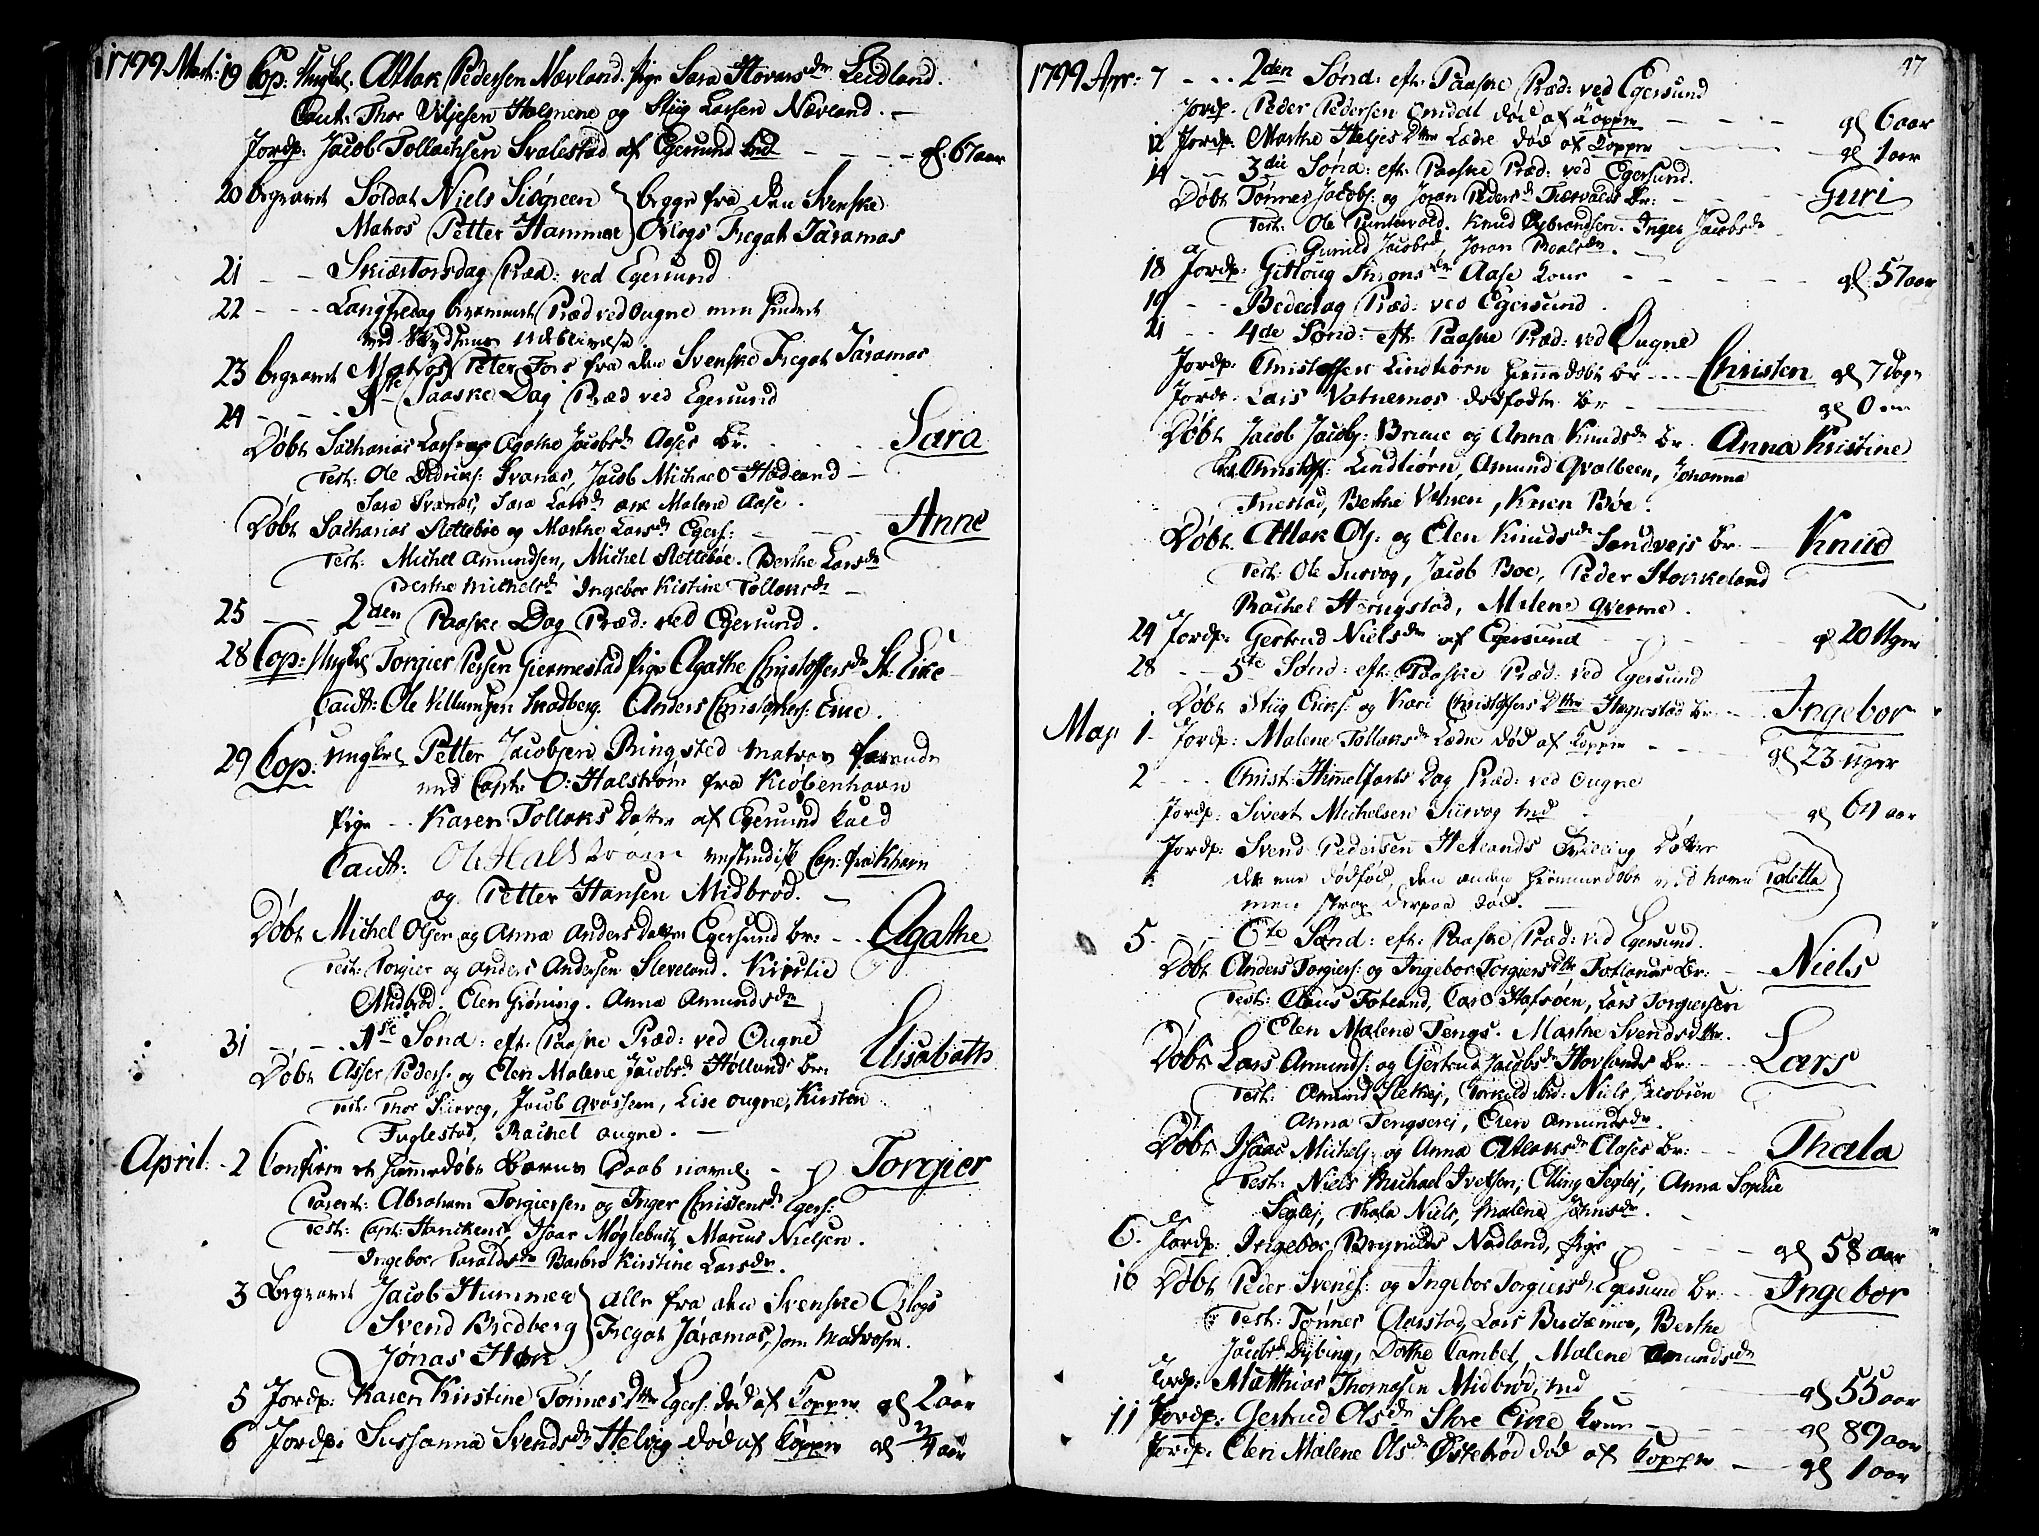 1799 Mart: 19 Cop: Ungkl. Atlak Pedersen Nævland. Pige Sara Hovarsdr Leidland.
Caut: Thor Viljesen Holmene og Stiig Larsen Nævland.
Jordp: Jacob Tollachsen Svalestad af Egersund - - - - gl. 67 aar
20 begravet Soldat Niels Siögreen } begge fra den Svenske
Matros Petter Hammar } Orlogs Fregat Jaramas
21 - - Skiærtorsdag Præd: ved Egersund
22 - - - Langfredag Præd ved Ougne men hindret
ved Skydsens udeblivelse.
23 begravet Matros Peter Fors fra den Svenske Fregat Jaramas
24 - - - 1ste Paaske Dag Præd ved Egersund
Døbt Sacharias Larsen og Agathe Jacobsdr Aases Br. - - Sara
Test: Ole Didriks: Svanes, Jacob Michael Hadeland -
Sara Svanes, Sara Larsdr Malene Aase.
Døbt Sacharias Slettebøe og Marthe Larsdr Egers: - - Anne
Test: Michel Amundsen, Michel Slettebøe. Berthe Larsdr
Berthe Michelsdr Ingebor Kistine Tollaksdr -
25 - - 2den Paaske Dag Præd: ved Egersund.
28 Cop: Ungkl Torgier Persen Giermestad Pige Agathe Christoffersdr St: Eike
Caut: Ole Villumsen Skadberg. Anders Christophers: Eike.
29 Cop: Ungkl Petter Jacobsen Ringsted Matros farende
med Capt: O: Halstrøm fra Kiøbenhavn
Pige - Karen Tollaks Datter af Egersund
Caut: Ole Halstrøm Vestindisk Cap: fra Khavn
og Petter Hansen Midbrod. -
Døbt Michel Olsen og Anna Anders Datter Egersund Br: - - Agathe
Test: Torgier og Anders Andersen Sleveland. Kirstie
Midbrod. Elen Grøning. Anna Amundsdr
31 - - 1ste Sønd: eft: Paaske Præd: ved Ougne
Døbt Asser Peders: og Elen Malene Jacobsdr Hollands Br: Elisabath
Test: Thor Siirvog, Jacob Qvassem, Lise Ougne, Kirsten
Fuglestad, Rachel Ougne. -
April: - 2 Confirm et hiemmedøbt Barns Daab navnl: - Torgier
Parent: Abraham Torgiersen og Inger Christensdr Egers:
Test: Capt: Hanckens, Isaac Møglebust, Marcus Nielsen.
Ingebor Taraldsdr Barbro Kirstine Larsdr.
3 Begravet Jacob Hummer } alle fra den Svenske Orlogs
Svend Bredberg } Fregat Jaramas, som Matroser.
Jønas Hörk
5 Jordp: Karen Kirstine Tönnes Dtr Egers: død af Kopper gl 2 aar
6 Jordp: Sussanna Svendsdr Helvig død af Kopper gl 2/4 aar
47
1799 Apr: 7 - - - 2den Sønd: eft: Paaske Præd: ved Egersund
Jordp. Peder Pedersen Omdal død af Kopper - - - gl 6 aar
12 Jordp: Marthe Heljes Dtr Lædre død af Kopper - - gl 1 aar
14 - - 3die Sønd: eft: Paaske Præd: ved Egersund.
Døbt Tønnes Jacobs: og Joran Pedersdr Br: - - Guri
Test: Ole Puntervold. Knud Osbrandsen. Inger Jacobsdr
Gunild Jacobsd, Joran Roalsdr.
18 Jordp: Gitloug Simonsdr Aase Kone - - - gl: 57 aar
19 - - Bededag Præd: ved Egersund.
21 - - 4de Sønd: eft: Paaske Præd: ved Ougne
Jordp: Christoffers Lindtiørn hiemmedøbt Br - - - Christen gl 7 dage
Jordp: Lars Vatnemos dødfødte Br - - gl 0
Døbt Jacob Jacobs: Brune og Anna Knudsdr Br. Anna Kristine
Test: Christoff: Lindtiørn, Amund Qvalbeen, Johanna
Fuestad, Berthe Vatnen, Karen Bøe.
Døbt Atlak Ols: og Elen Knudsdr Sandveis Br: - Knud
Test: Ole Survog, Jacob Boe, Peder Stokkeland
Rachel Hengstad, Malene Qverme.
24 Jordp: Gertrud Nielsdr af Egersund - - - gl 20 Uger
28 - - 5te Sønd: eft: Paaske Præd: ved Egersund
Døbt Stiig Eriks: og Kari Christoffers Dtr Hegrestad Br: - - Ingebor
Maj 1. Jordp: Malene Tollaksdr Lædre død af Kopper - - - gl 23 Uger
2 - - - Christ: Himmelfarts Dag Præd: ved Ougne
Jordp: Sivert Michelsen Siirvog - gl 64 aar
Jordp: Svend Pedersen Hetlands Tvilling Døttre
den ene dødfød, den anden hiemmedøbt ved navn Taletta
men strax derpaa død. -
5. - - 6te Sønd: eft: Paaske Præd: ved Egersund.
Døbt Anders Torgiers: og Ingebor Torgiersdtr Totlands Br: - Niels
Test: Claus Totland, Carl Hafsøen, Lars Torgiersen
Elen Malene Tengs. Marthe Svendsdtr.
Døbt Lars Amunds: og Gertrud Jacobsdr Hovlands Br: - - - Lars
Test: Amund Slethej, Torkild ibid: Niels Jacobsen
Anna Tengsarej, Elen Amundsdr.
Døbt Isaac Michels: og Anna Atlaksdr Eloses Br: - - Thala
Test: Niels Michael Ivetsen, Elling Seglej, Anna Sophie
Seglej, Thala Niels, Malene Johnsdr.
6. Jordp: Ingebor Brynilds Nodland, Pige - - - gl 58 aar
10 Døbt Peder Svends: og Ingebor Torgiersdr Egersund Br: - Ingebor
Test: Tønnes Aarstad, Lars Birkemoe, Berthe
Jacobsdr Dybing, Dorthe Tambel, Malene Amundsdr
Jordp: Matthias Thomasen Midbrød, - - gl 55 aar
11 Jordp: Gertrud Olsdr Store Eike Kone - - gl 89 aar
Jordp: Elen Malene Olsdr Østebrød død af Kopper - gl 1 aar